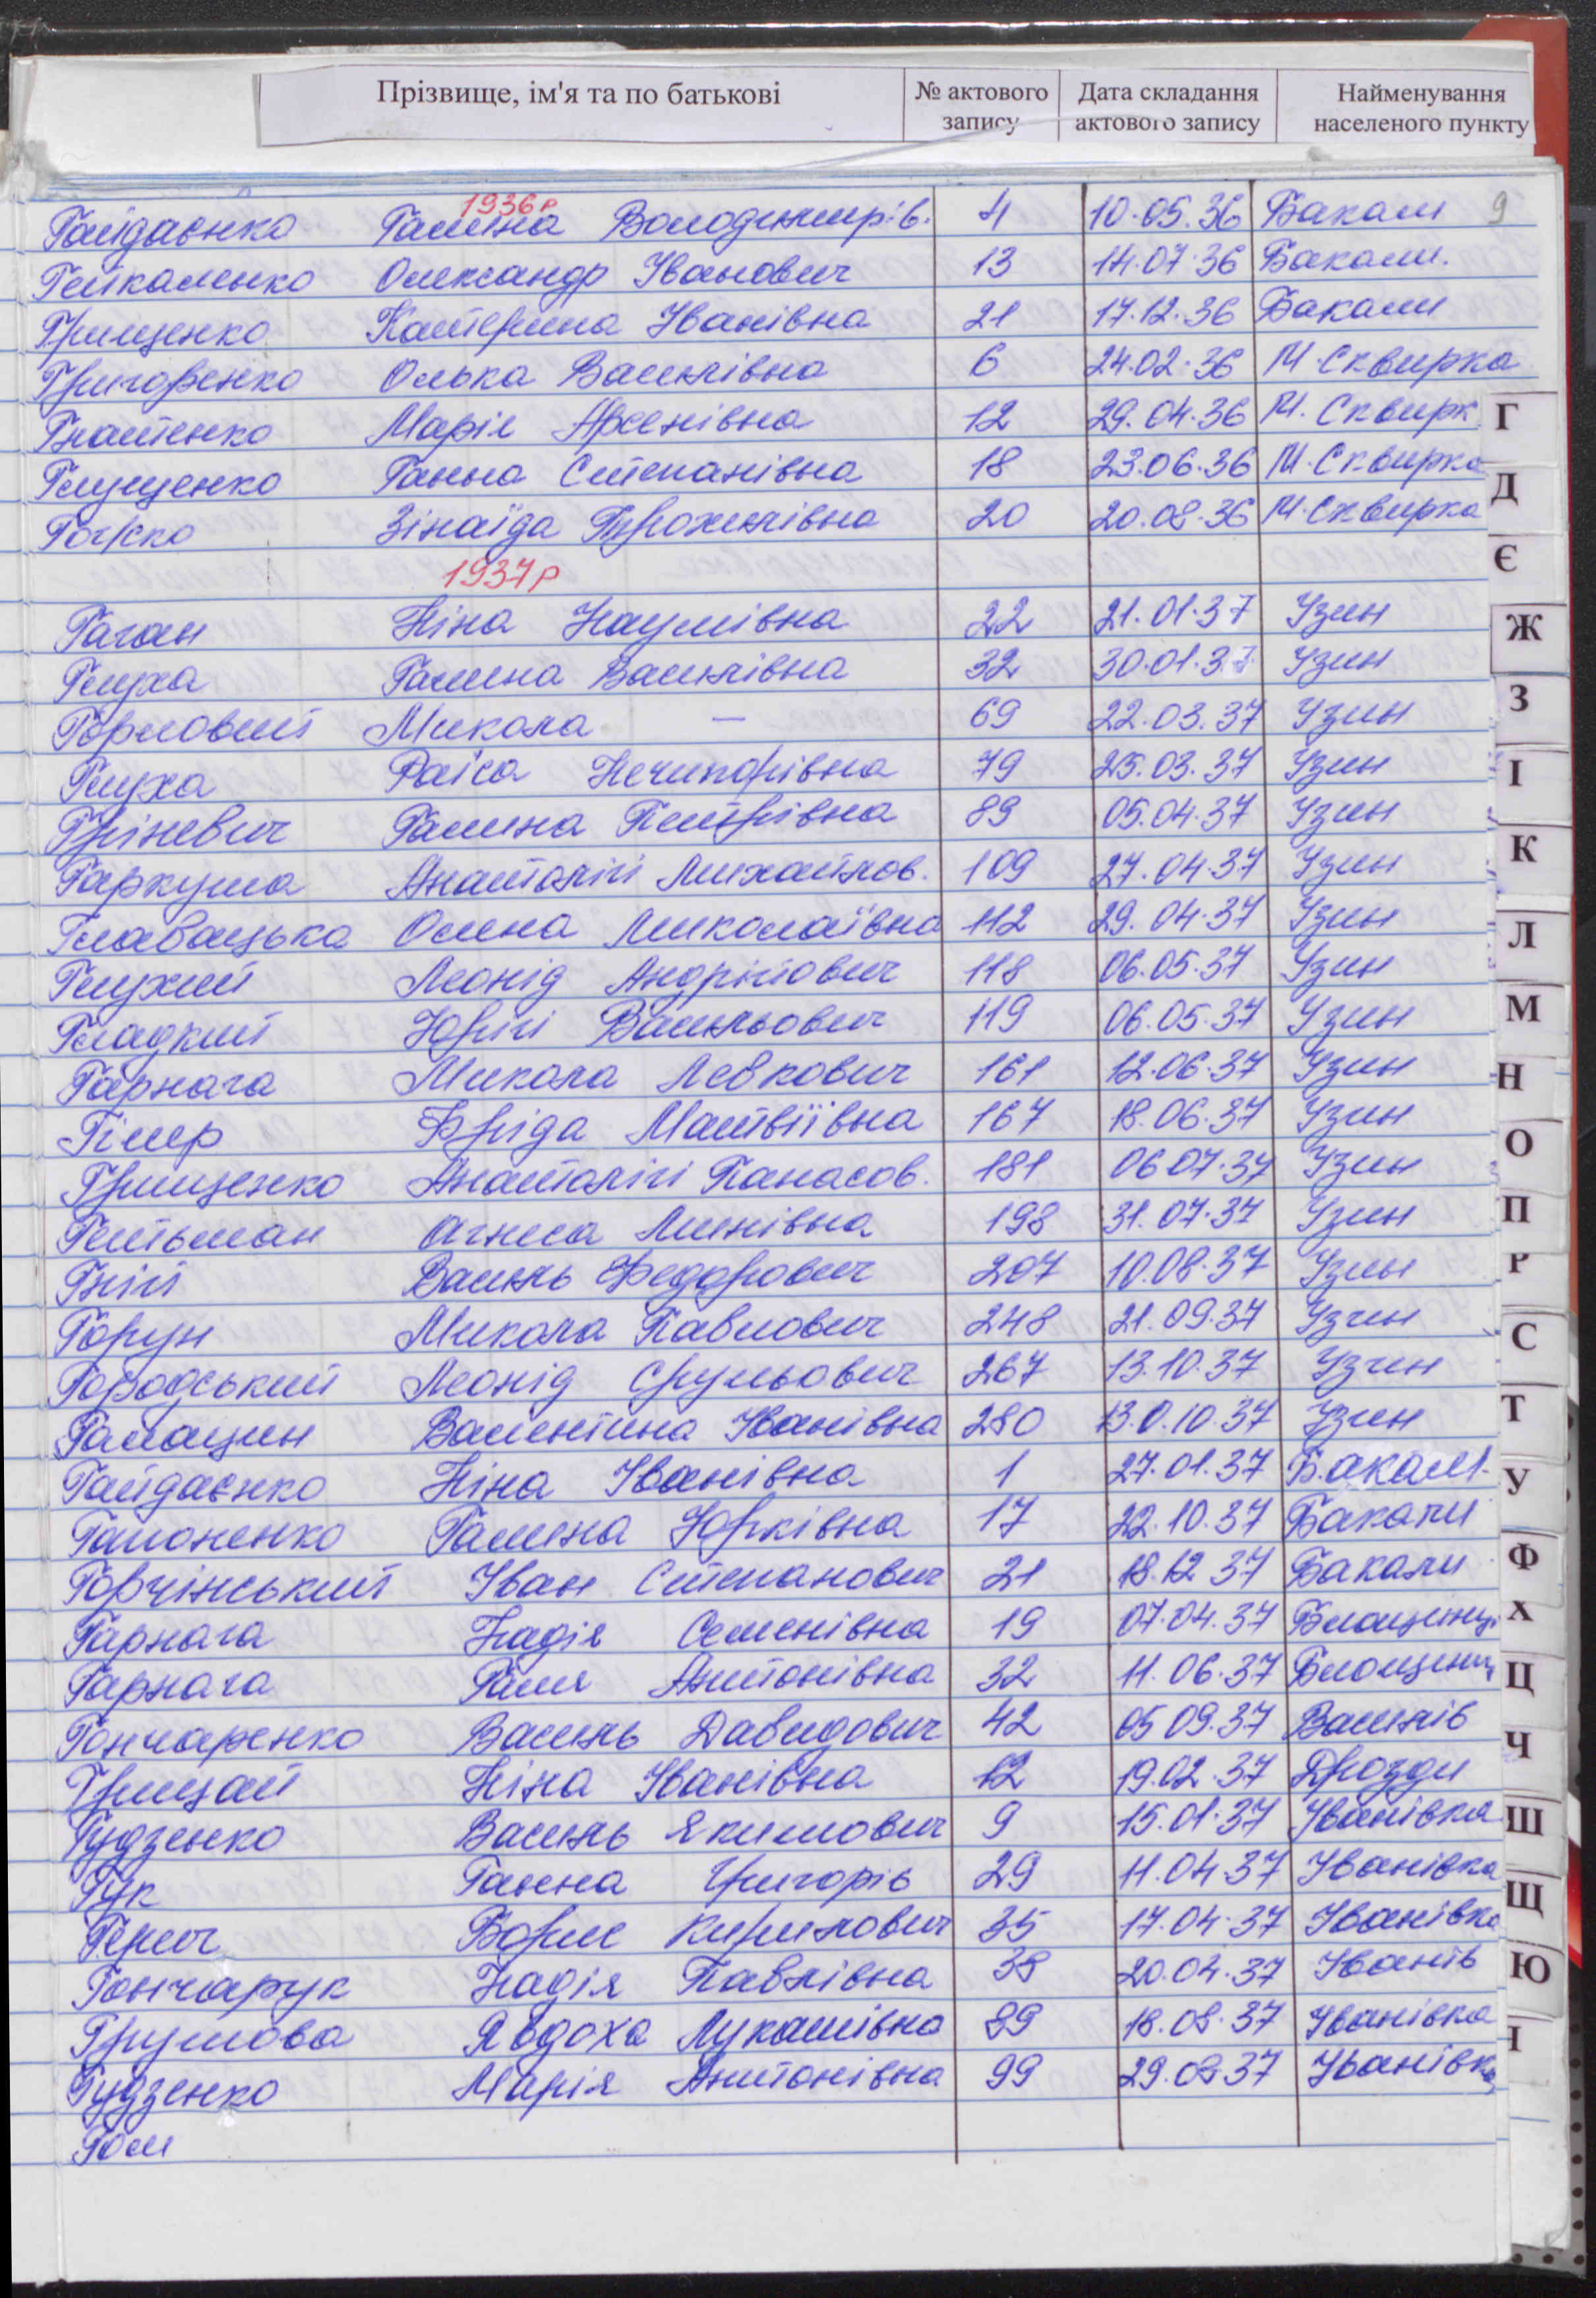 Прізвище, ім'я та по батькові № актового запису Дата складання актового запису Найменування населеного пункту
9
1936 р
Гайдаєнко Галина Володимирів. 4 10.05.36 Бакали
Гейкаленко Олександр Іванович 13 14.07.36 Бакали.
Грищенко Катерина Іванівна 21 17.12.36 Бакали
Григоренко Олька Василівна 6 24.02.36 М.Сквирка
Гнатенко Марія Арсенівна 12 29.04.36 М. Сквирк
Глущенко Ганна Степанівна 18 23.06.36 М.Сквирка
Зінаїда Трохимівна 20 20.08.36 М.Сквирка
1937 р
Гаган Ніна Наумівна 22 21.01.37 Узин
Глуха Галина Василівна 32 30.01.37 Узин
Горловий Микола — 69 22.03.37 Узин
Глуха Раїса Нечипорівна 79 25.03.37 Узин
Гріневич Галина Петрівна 89 05.04.37 Узин
Гаркуша Анатолій Михайлов. 109 27.04.37 Узин
Главацька Олена Миколаївна 112 29.04.37 Узин
Глухий Леонід Андрійович 118 06.05.37 Узин
Гладкий Юрій Васильович 119 06.05.37 Узин
Гарнага Микола Левкович 161 12.06.37 Узин
Гілер Фріда Матвіївна 167 18.06.37 Узин
Грищенко Анатолій Панасов. 181 06 07.37 Узин
Гетьман Агнеса 198 31.07.37 Узин
Гній Василь Федорович 207 10.08.37 Узин
Горун Микола Павлович 248 21.09.37 Узин
Городський Леонід Срульович 267 13.10.37 Узин
Галацин Валентина Іванівна 280 Узин
Гайдаєнко Ніна Іванівна 1 27.01.37 Бакали.
Галоненко Галина Юрківна 17 22.10.37 Бакали
Горчінський Іван Степанович 21 18.12 37 Бакали
Гарнага Надія Семенівна 19 07.04.37 Блощинці
Гарнага Галя Антонівна 32 11.06.37
Гончаренко Василь Давидович 42 05 09.37 Василів
Грицай Ніна Іванівна 12 19.02.37 Дрозди
Гудзенко Василь Якимович 9 15.01.37 Іванівка
Гук Ганна Григорів 29 11.04.37 Іванівка
Герич Борис Кирилович 35 17.04.37 Іванівка
Гончарук Надія Павлівна 38 20.04.37 Іванів
Грушова Явдоха Лукашівна 89 18.08.37 Іванівка
Гудзенко Марія Антонівна 99 29.08 37 Іванівка
Гом
Г
Д
Є
Ж
З
І
К
Л
М
Н
О
П
Р
С
Т
У
Ф
Х
Ц
Ч
Ш
Щ
Ю